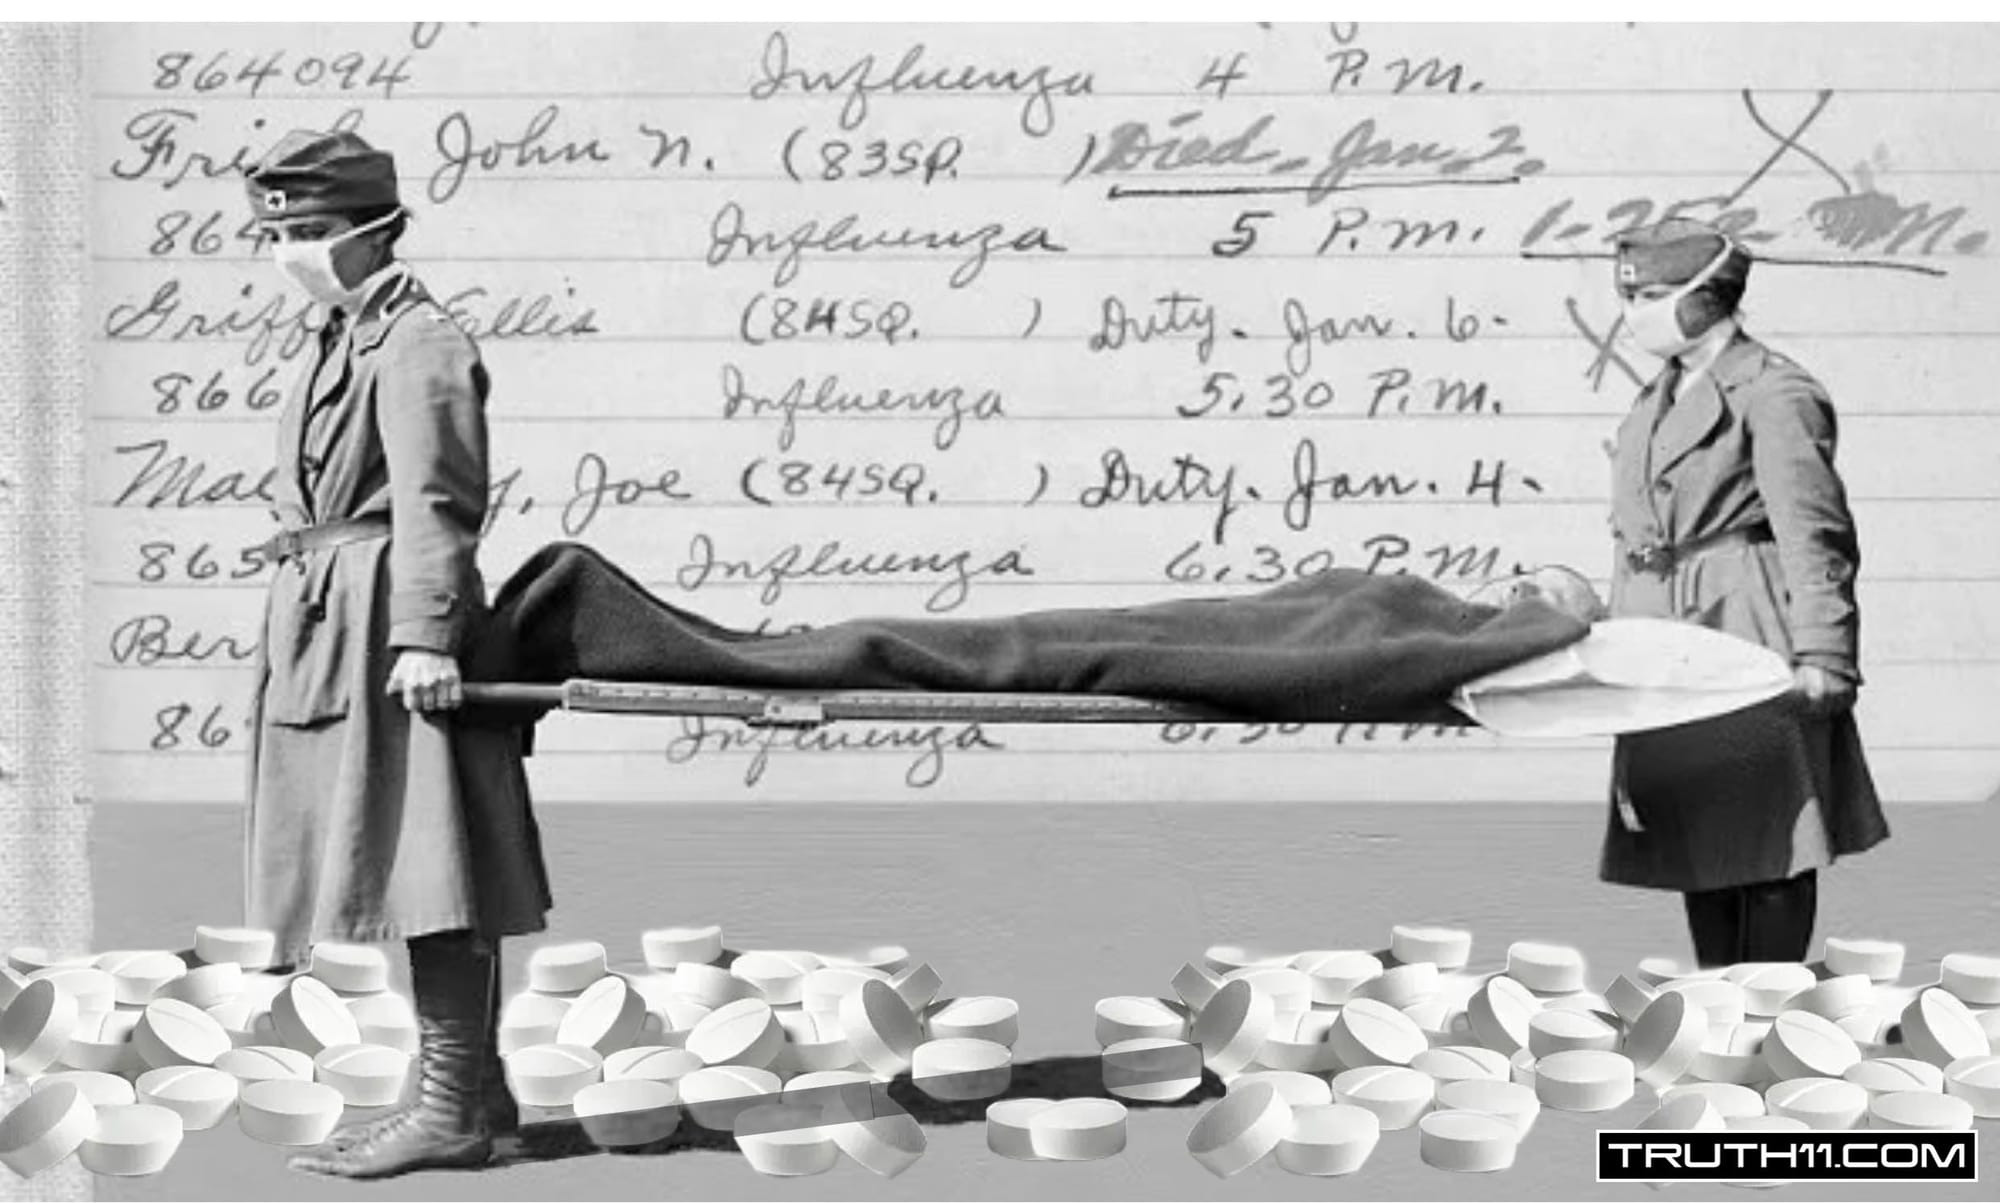 864094 Influenza 4 P.M.
Fri John N. (83SQ. ) Died. Jan. 2.
864 Influenza 5 P.M.
Griff Ellis (84SQ. ) Duty. Jan. 6-
866 Influenza 5.30 P.M.
Mac y, Joe (84SQ. ) Duty. Jan. 4-
865 Influenza 6.30 P.M.
Ber
86 Influenza 6.30 P.M.
TRUTH11.COM